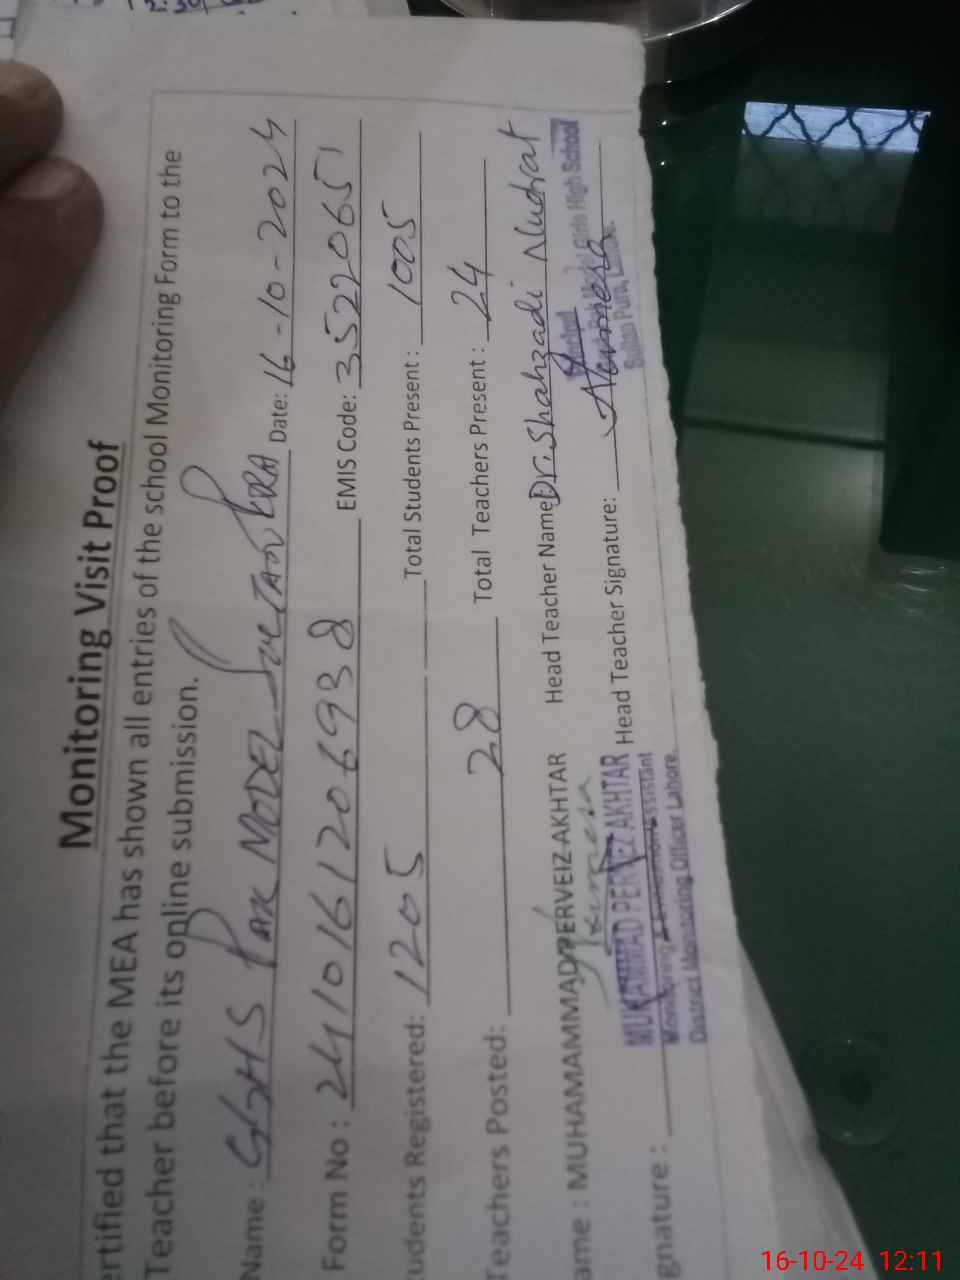 Monitoring Visit Proof
ertified that the MEA has shown all entries of the school Monitoring Form to the
Teacher before its online submission.
Name : GGHS PAK MODEL SULTAN PURA Date: 16-10-2024
Form No : 2410161206938 EMIS Code: 35220651
udents Registered: 1205 Total Students Present : 1005
Teachers Posted: 28 Total Teachers Present : 24
ame : MUHAMAMMAD PERVEIZ AKHTAR Head Teacher Name Dr. Shahzadi Nudrat
gnature : Head Teacher Signature:
MUHAMMAD PERVEZ AKHTAR
Monitoring Assistant
District Monitoring Officer Lahore.
Girls High School
Sultan Pura,
16-10-24 12:11